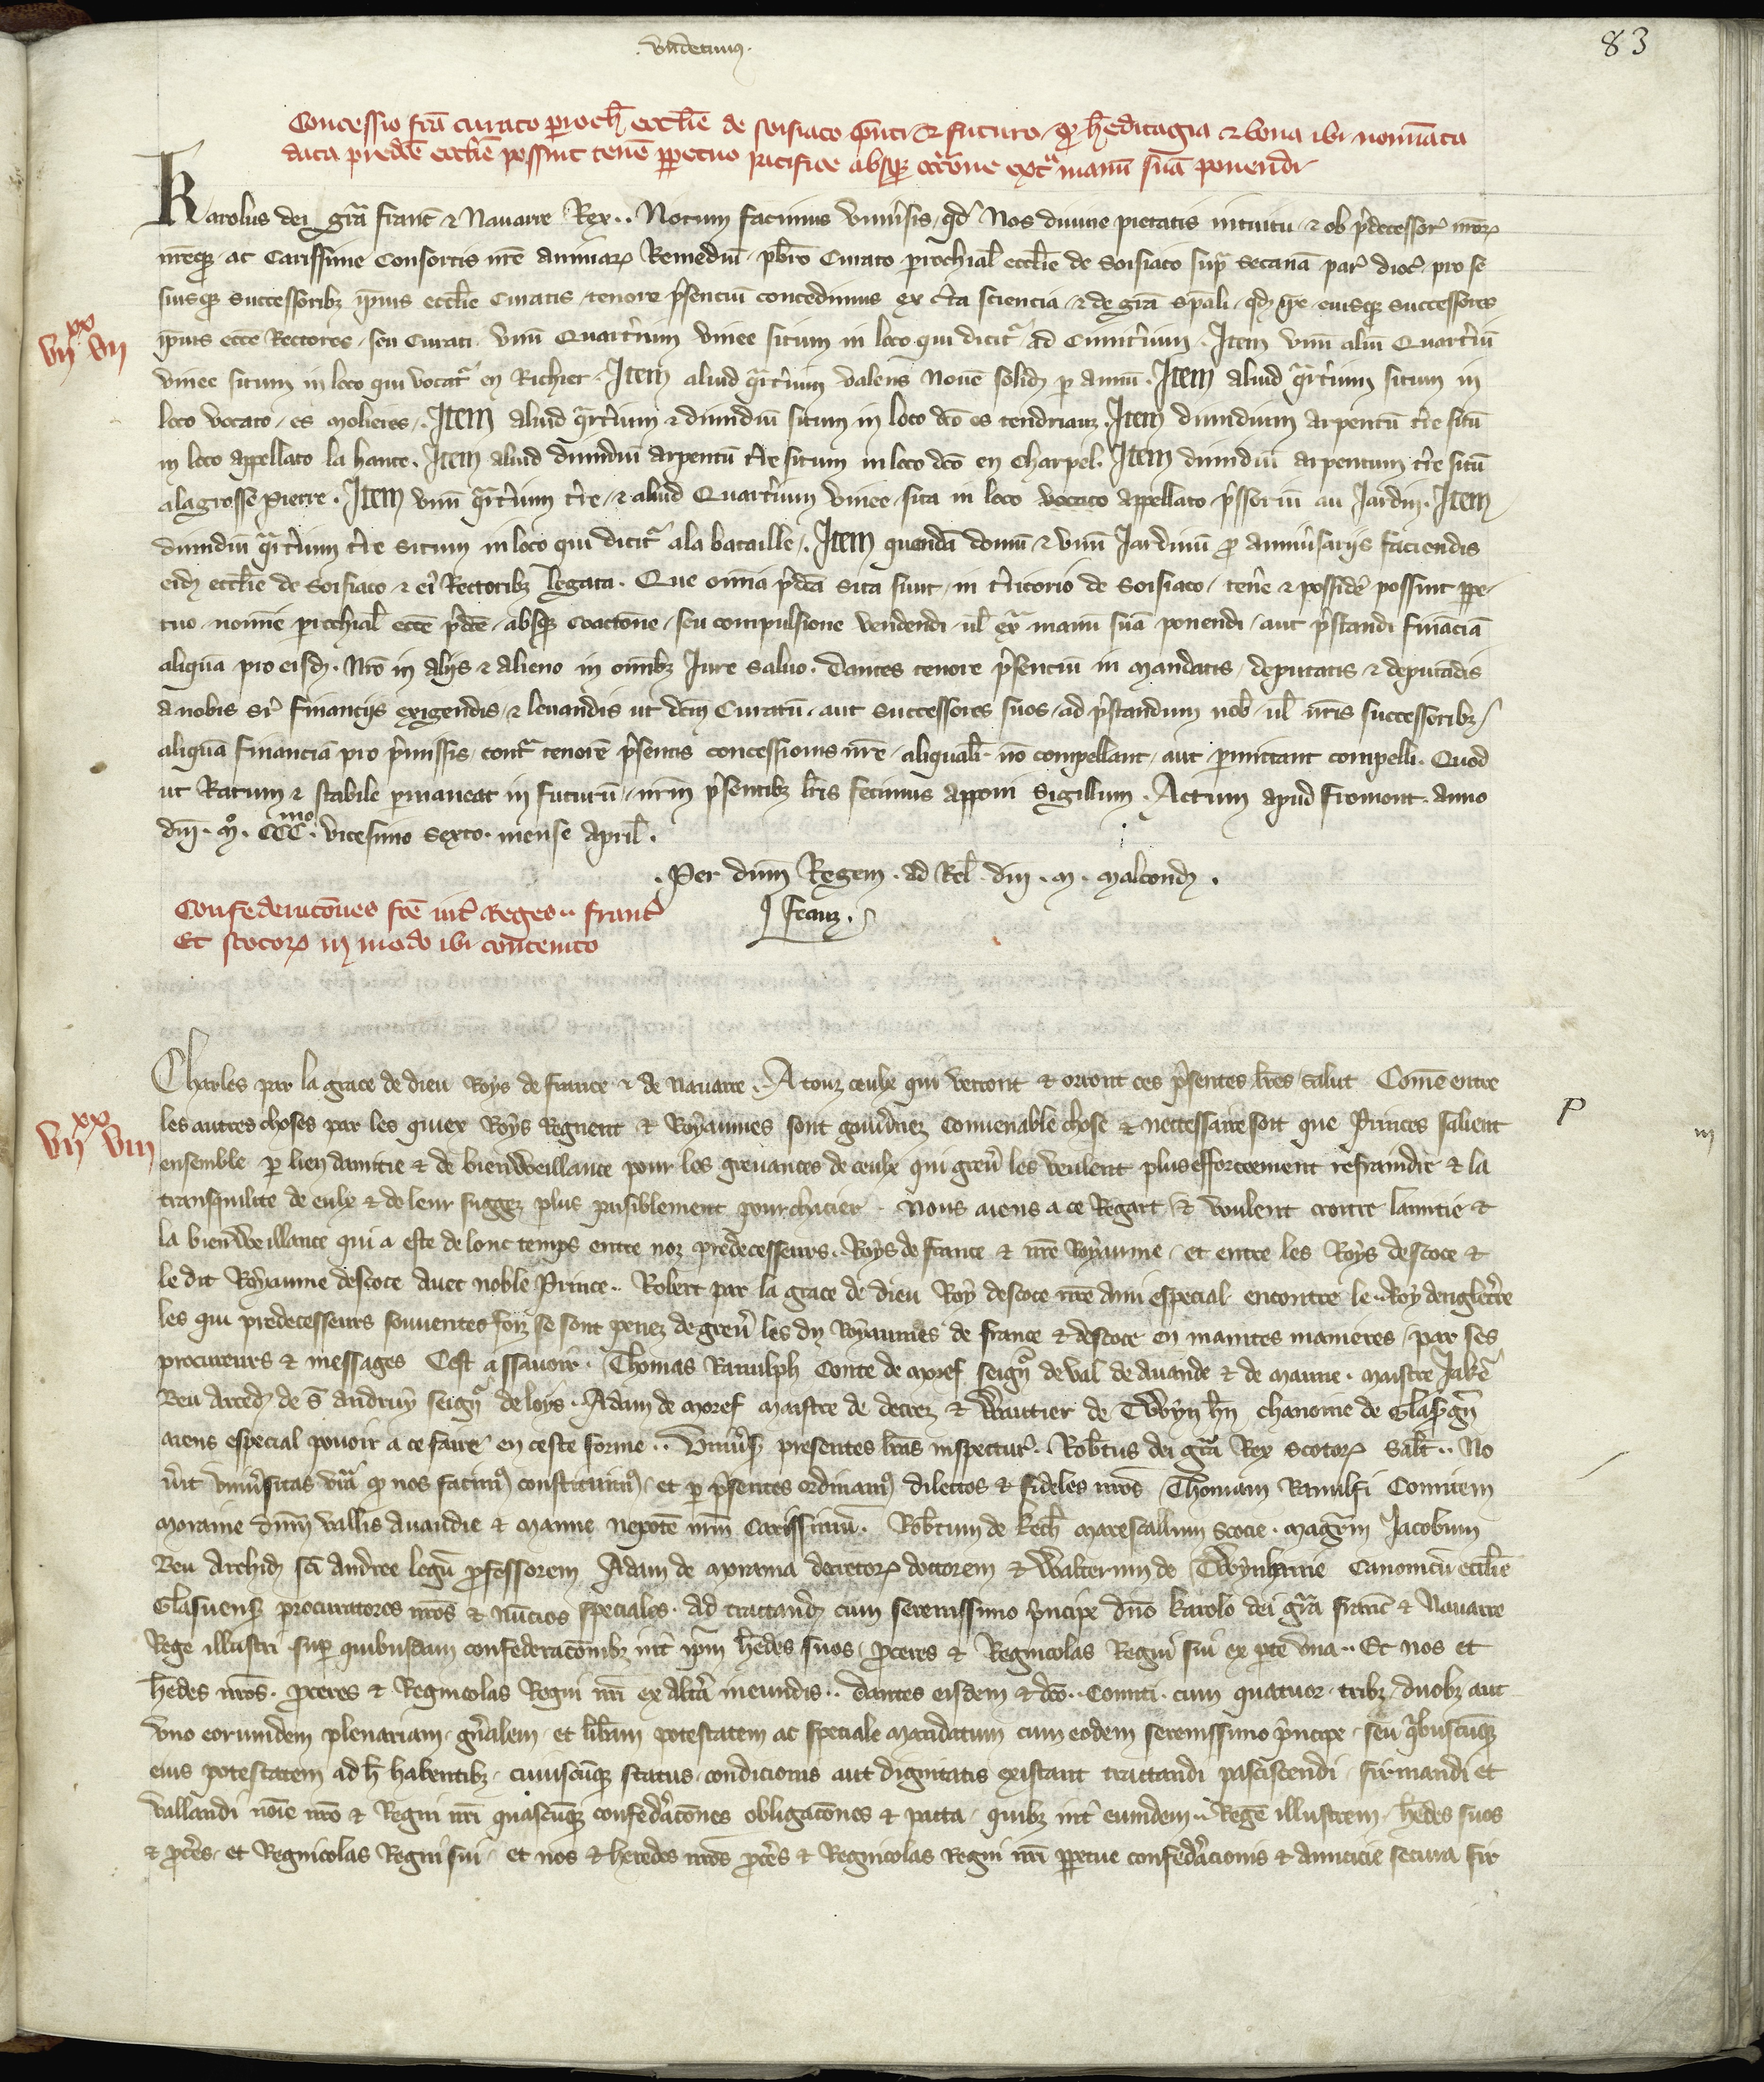 83
Concessio fcā curato ꝑroch̄ eccl̄ie de soisiaco p̄nti & futuro, ꝙ h̄editagia & bona ibi nominata
data predc̄e eccl̄ie possint tenē ꝑpetuo pacifice absqꝫ coactōne extͣ manū suā ponendi
Karolus dei grā franc̄ & Nauarre Rex.. Notum facimus vniūsis, qd̄ Nos diuine pietatis intuitu, & ob p̄decessoꝝ nrōꝝ
nrēqꝫ, ac Carissime Consortis nrē animaꝝ Remediū, pbrō Curato parrochial̄ eccl̄ie de Soisiaco supͣ Secanā par̄ dioc̄, pro se
suisqꝫ successoribꝫ ipius eccl̄ie Curatis, tenore p̄senciū concedimus ex c̄ta sciencia, & de grā sp̄ali, qd̄ ip̄e, eiusqꝫ successores
vijxx vij
ipius eccē Rectores, seu Curati, vnū Quart̄ium vinee situm in loco qui dicitͬ, ad Cimit̄ium. Item vnū aliū Quart̄iū
vinee situm in loco qui vocatͬ en Richier. Item aliud qͣrt̄ium valens Nouē solid̄ ꝑ annū. Item aliud qͣrt̄ium situm in
loco vocato, es molieres,. Item aliud qͣrt̄ium & dimidiū situm in loco dc̄o es tendriaux. Item dimidium arpentū t̄re sitū
in loco appellato la hante. Item aliud dimidiū arpentū t̄re situm in loco dc̄o en Charpel. Item dimidiū arpentum t̄re sitū
alagrosse pierre. Item vnū qͣrt̄ium t̄re, & aliud Quart̄ium vinee, sita in loco vocato appellato, p̄ssoriū au Jardin. Item
dimidiū qͣrt̄ium t̄re situm in loco qui dicitͬ ala bataille,. Item quendā domū & vnū Jardinū ꝓ anniūsarijs faciendis
eid̄ eccl̄ie de Soisiaco & eiͬ Rectoribꝫ legata. Que om̄ia p̄dc̄a sita sunt, in t̄ritorio de Soisiaco, ten̄e & possidē possint ꝑpe-
tuo, nomīe parrochial̄ eccē p̄dc̄e, absqꝫ Coactōne, seu compulsione vendendi, ul̄ exͣ manū suā ponendi, aut p̄standi finaciā
aliquā pro eisd̄. Nrō in alijs & alieno in om̄ibꝫ Jure saluo. Dantes tenore p̄senciū in Mandatis, deputatis & deputādis
a nobis sr̄ financijs exigendis, & leuandis ut dc̄m Curatū, aut Successores suos, ad p̄standum nob̄, ul̄ nrīs successoribꝫ,
aliquā financiā pro p̄missis, contͣ tenorē p̄sentis concessionis nrē, aliqualiͭ nō compellant, aut ꝑmittant compelli. Quod
ut Ratum & stabile ꝑmaneat in futurū, nrm̄ p̄sentibꝫ lrīs fecimus apponi Sigillum. Actum apud fromont. anno
dn̄i. mͦ. CCCmo. vicesimo Sexto. mense April̄.
.Per dn̄m Regem. ad Rel̄. dn̄i. m. malcond̄.
Confederacōnes fcē int̄ Reges.. franc̄
Et scotoꝝ in modo ibi contento
Charles par la grace de dieu Roys de france & de Nauarre. A touz ceulx qui verront & orront ces p̄sentes lres salut Com̄e entre
les autres choses par les quiex Roys Regnent & Royaumes sont gouūnez Conuenable chose & nettessaire soit que Princes salient
vijxx viij
ensemble ꝑ lien damitie & de bienweillance pour les greuances de ceulx qui greū les veulent plus efforceement refraindre & la
transquilite de eulx & de leur suggez plus paisiblement pourchacier. Nous aiens a ce Regart & voulent croitre lamitie &
la bienweillance qui a este de lonc temps entre noz predecesseurs. Roys de france & nrē Royaume, et entre les Roys descoce &
le dit Royaume descoce auec noble Prince.. Robert par la grace de dieu Roy descoce nrē ami especial encontre le.. Roy denglet̄re
les qui predecesseurs souuentes foiz se sont penez de greū les diz Royaumes de france & descoce en maintes manieres, par ses
procureurs & messages Cest assauoir. Thomas Ranulph Conte de Moref seignͬ de val de Auande & de Manne. maistre Jakē
Ben Arced̄ de s̄ Andruy seignͬ de loys. Adam de Moref maistre de decrez & Wautier de Twynh̄n chanoine de Glasgū
aiens especial pouoir a ce faire en ceste forme.. Vniūsꝭ presentes lrās inspecturꝭ. Rob̄tus dei grā Rex Scotoꝝ salt̄.. No
ūit vniūsitas vrā ꝙ nos facimꝰ constituimꝰ, et ꝑ p̄sentes ordinamꝰ dilectos & fideles nrōs Thomam Ranulfi Comitem
Moraine dn̄m vallis Auandie & Manne nepotē nrm̄ Carissimū. Rob̄tum de Kech̄ marescallum Scocie. magr̄m Jacobum
Ben Archid̄ sc̄i Andree legū ꝓfessorem Adam de Morauia decretoꝝ doctorem & Walterum de Twynhame Canonicū eccl̄ie
Glasuensꝭ procuratores nrōs & nūcios speciales. ad tractand̄ cum serenissimo p̄ncipe dn̄o Karolo dei grā franc̄ & Nauarre
Rege illustri suꝑ quibusdam confederacōnibꝫ int̄ ip̄m h̄edes suos, ꝓceres & Regnicolas Regni sui ex ꝑte vna.. Et nos et
h̄edes nrōs. ꝓceres & Regnicolas Regni nrī ex alt̄a ineundis.. Dantes eisdem & dc̄o.. Comiti. cum quatuor. tribꝫ, duobꝫ aut
vno eorumdem plenariam, gn̄alem, et lib̄am potestatem ac speciale mandatum cum eodem serenissimo p̄ncipe, seu qͥbuscūqꝫ
eius potestatem ad h̄ habentibꝫ, cuiuscūqꝫ status, condicionis aut dignitatis existant tractandi pasciscendi, firmandi et
vallandi noīe nrō & Regni nrī quascūqꝫ confed̄acōnes obligacōnes & pacta, quibꝫ int̄ eumdem.. Regē illustrem, h̄edes suos
& ꝓc̄es, et Regnicolas Regni sui, et nos & heredes nrōs ꝓc̄es & Regnicolas regni nrī ꝑpetue confed̄acionis & amicicie secura fir